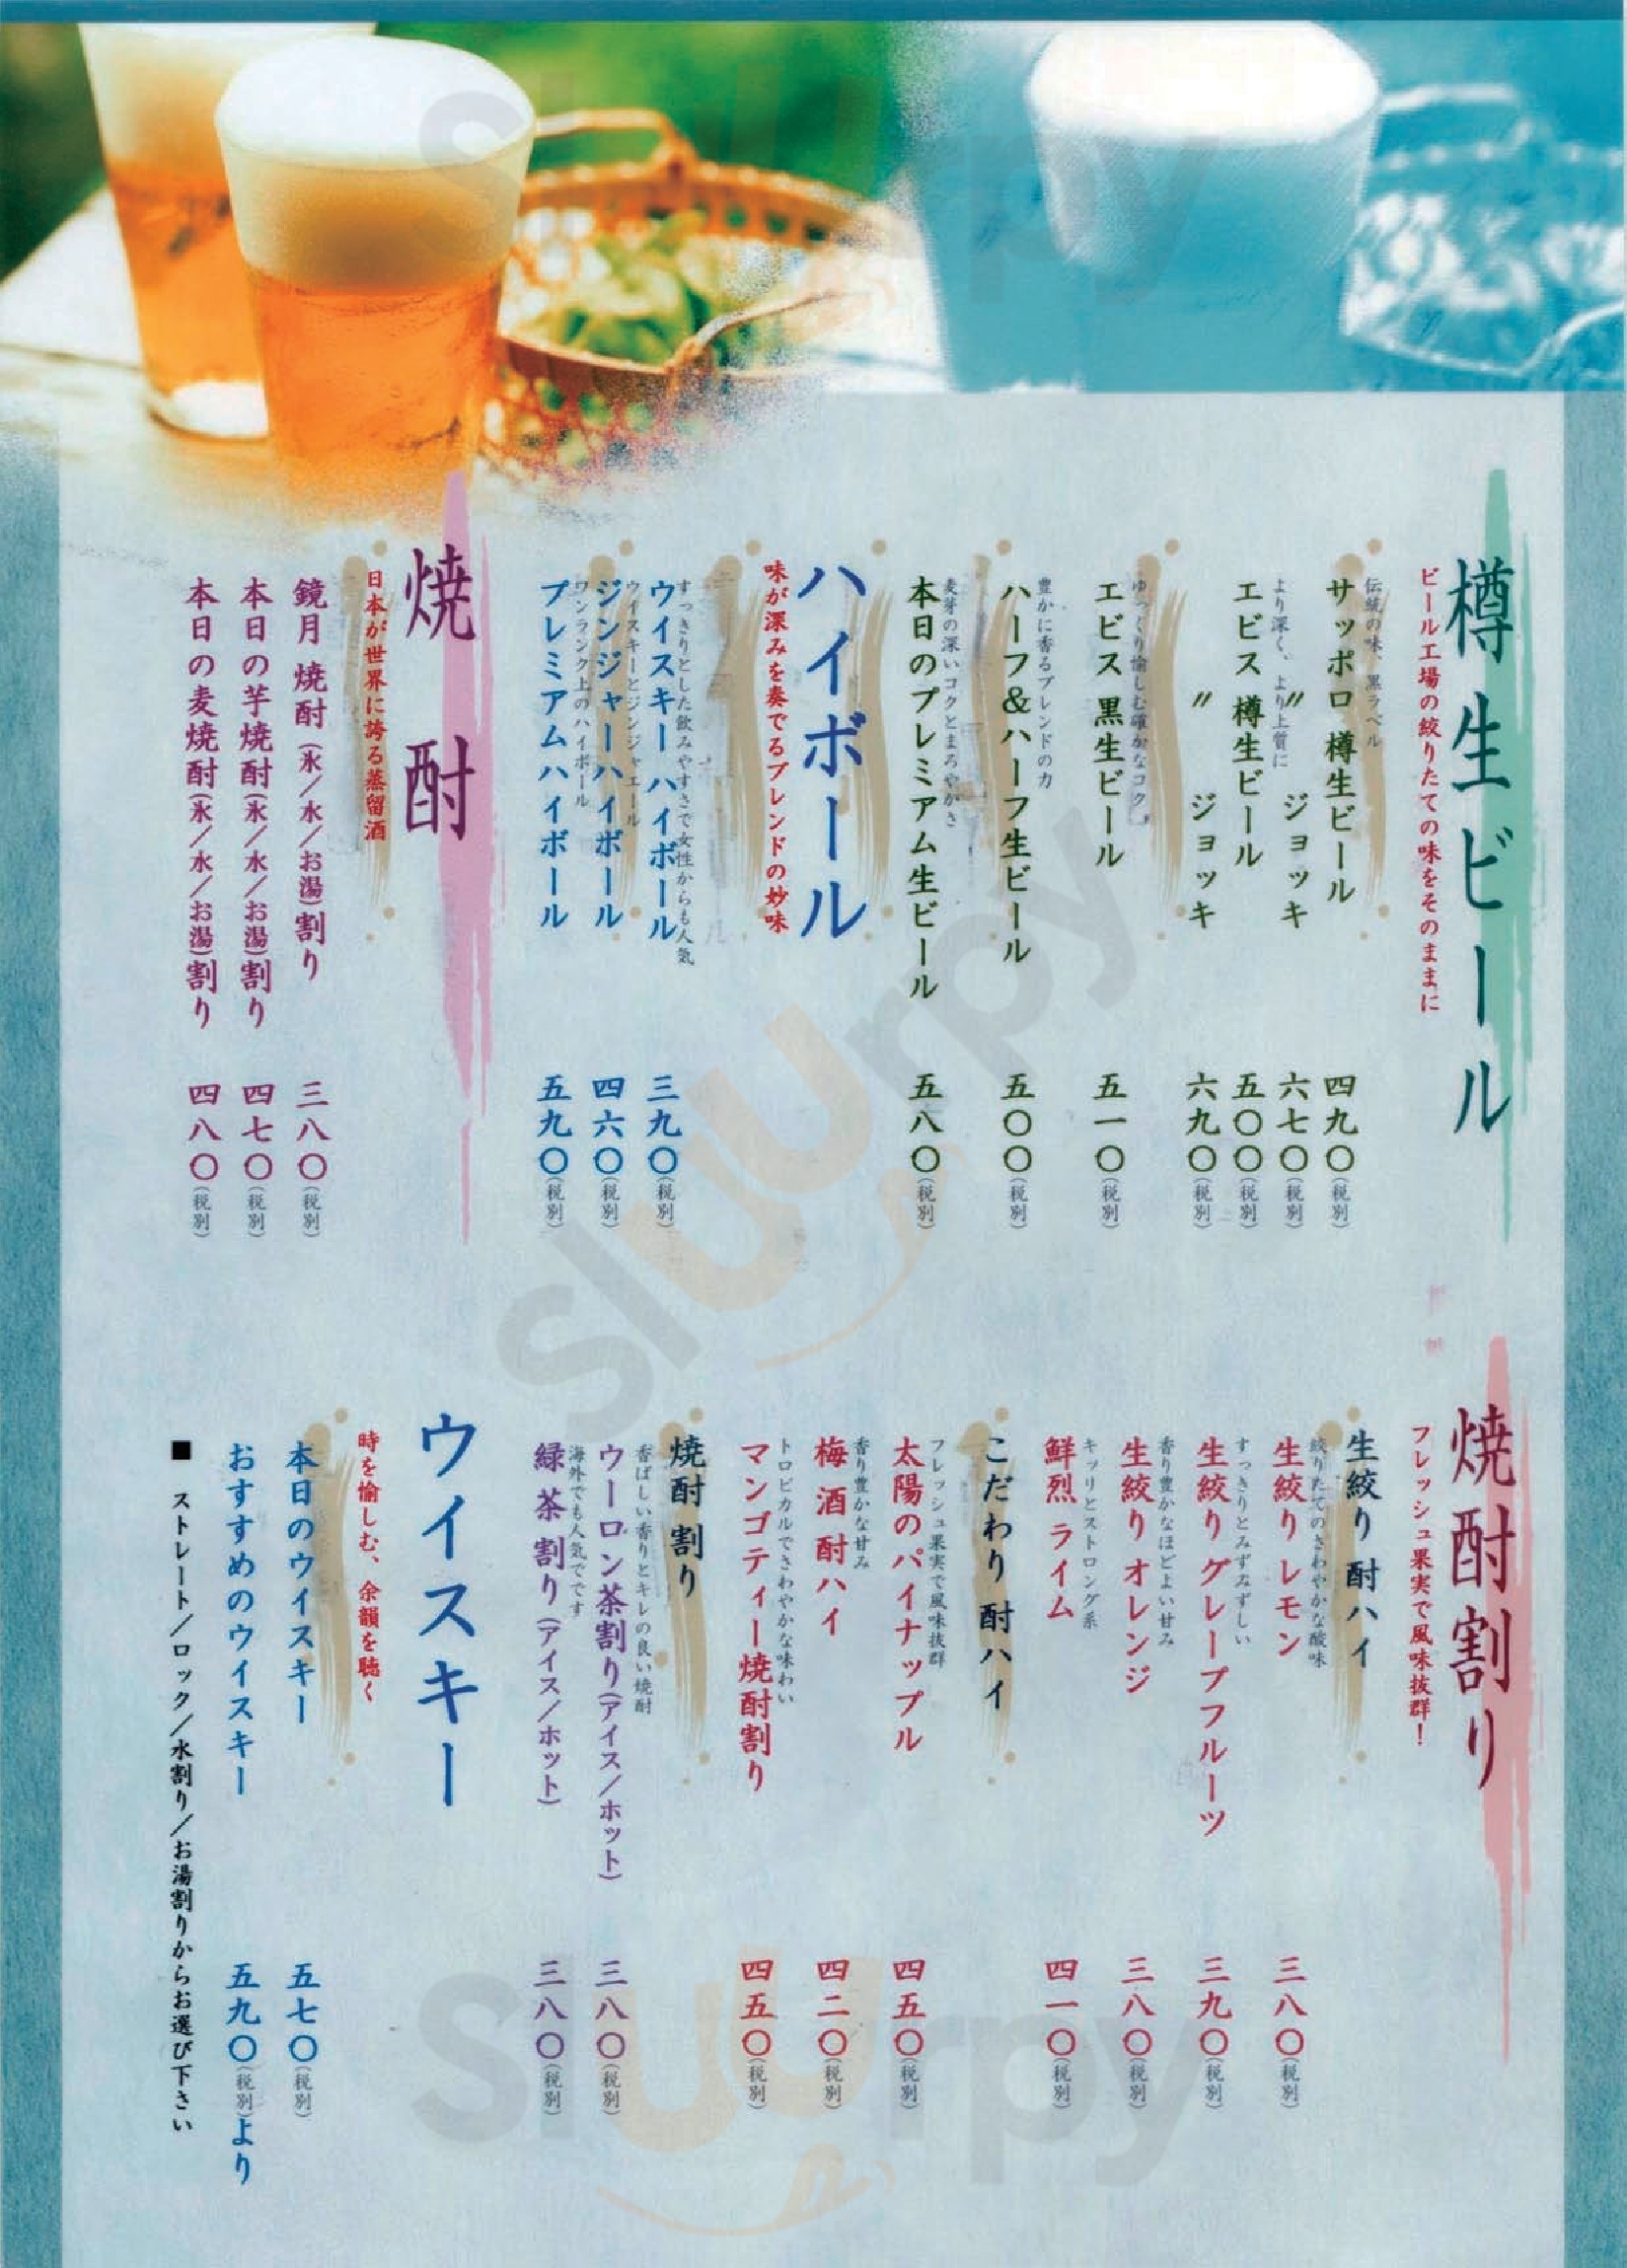 樽生ビール
ビール工場の絞りたての味をそのままに
伝統の味、黒ラベル
サッポロ 樽生ビール 四九〇(税別)
〃 ジョッキ 六七〇(税別)
より深く、より上質に
エビス 樽生ビール 五〇〇(税別)
〃 ジョッキ 六九〇(税別)
ゆっくり愉しむ確かなコク
エビス 黒生ビール 五一〇(税別)
豊かに香るブレンドの力
ハーフ&ハーフ生ビール 五〇〇(税別)
麦芽の深いコクとまろやかさ
本日のプレミアム生ビール 五八〇(税別)
ハイボール
味が深みを奏でるブレンドの妙味
すっきりとした飲みやすさで女性からも人気
ウイスキー ハイボール 三九〇(税別)
ウイスキーとジンジャエール
ジンジャーハイボール 四六〇(税別)
ワンランク上のハイボール
プレミアムハイボール 五九〇(税別)
焼酎
日本が世界に誇る蒸留酒
鏡月 焼酎(氷/水/お湯)割り 三八〇(税別)
本日の芋焼酎(氷/水/お湯)割り 四七〇(税別)
本日の麦焼酎(氷/水/お湯)割り 四八〇(税別)
焼酎割り
フレッシュ果実で風味抜群!
生絞り 酎ハイ
絞りたてのさわやかな酸味
生絞り レモン 三八〇(税別)
すっきりとみずみずしい
生絞り グレープフルーツ 三九〇(税別)
香り豊かなほどよい甘み
生絞り オレンジ 三八〇(税別)
キッリとストロング系
鮮烈 ライム 四一〇(税別)
こだわり 酎ハイ
フレッシュ果実で風味抜群
太陽のパイナップル 四五〇(税別)
香り豊かな甘み
梅酒酎ハイ 四二〇(税別)
トロピカルでさわやかな味わい
マンゴティー焼酎割り 四五〇(税別)
焼酎 割り
香ばしい香りとキレの良い焼酎
ウーロン茶割り(アイス/ホット) 三八〇(税別)
海外でも人気でです
緑茶 割り(アイス/ホット) 三八〇(税別)
ウイスキー
時を愉しむ、余韻を聴く
本日のウイスキー 五七〇(税別)
おすすめのウイスキー 五九〇(税別)より
■ ストレート/ロック/水割り/お湯割りからお選び下さい
Sluurpy
Sluurpy
Sluurpy